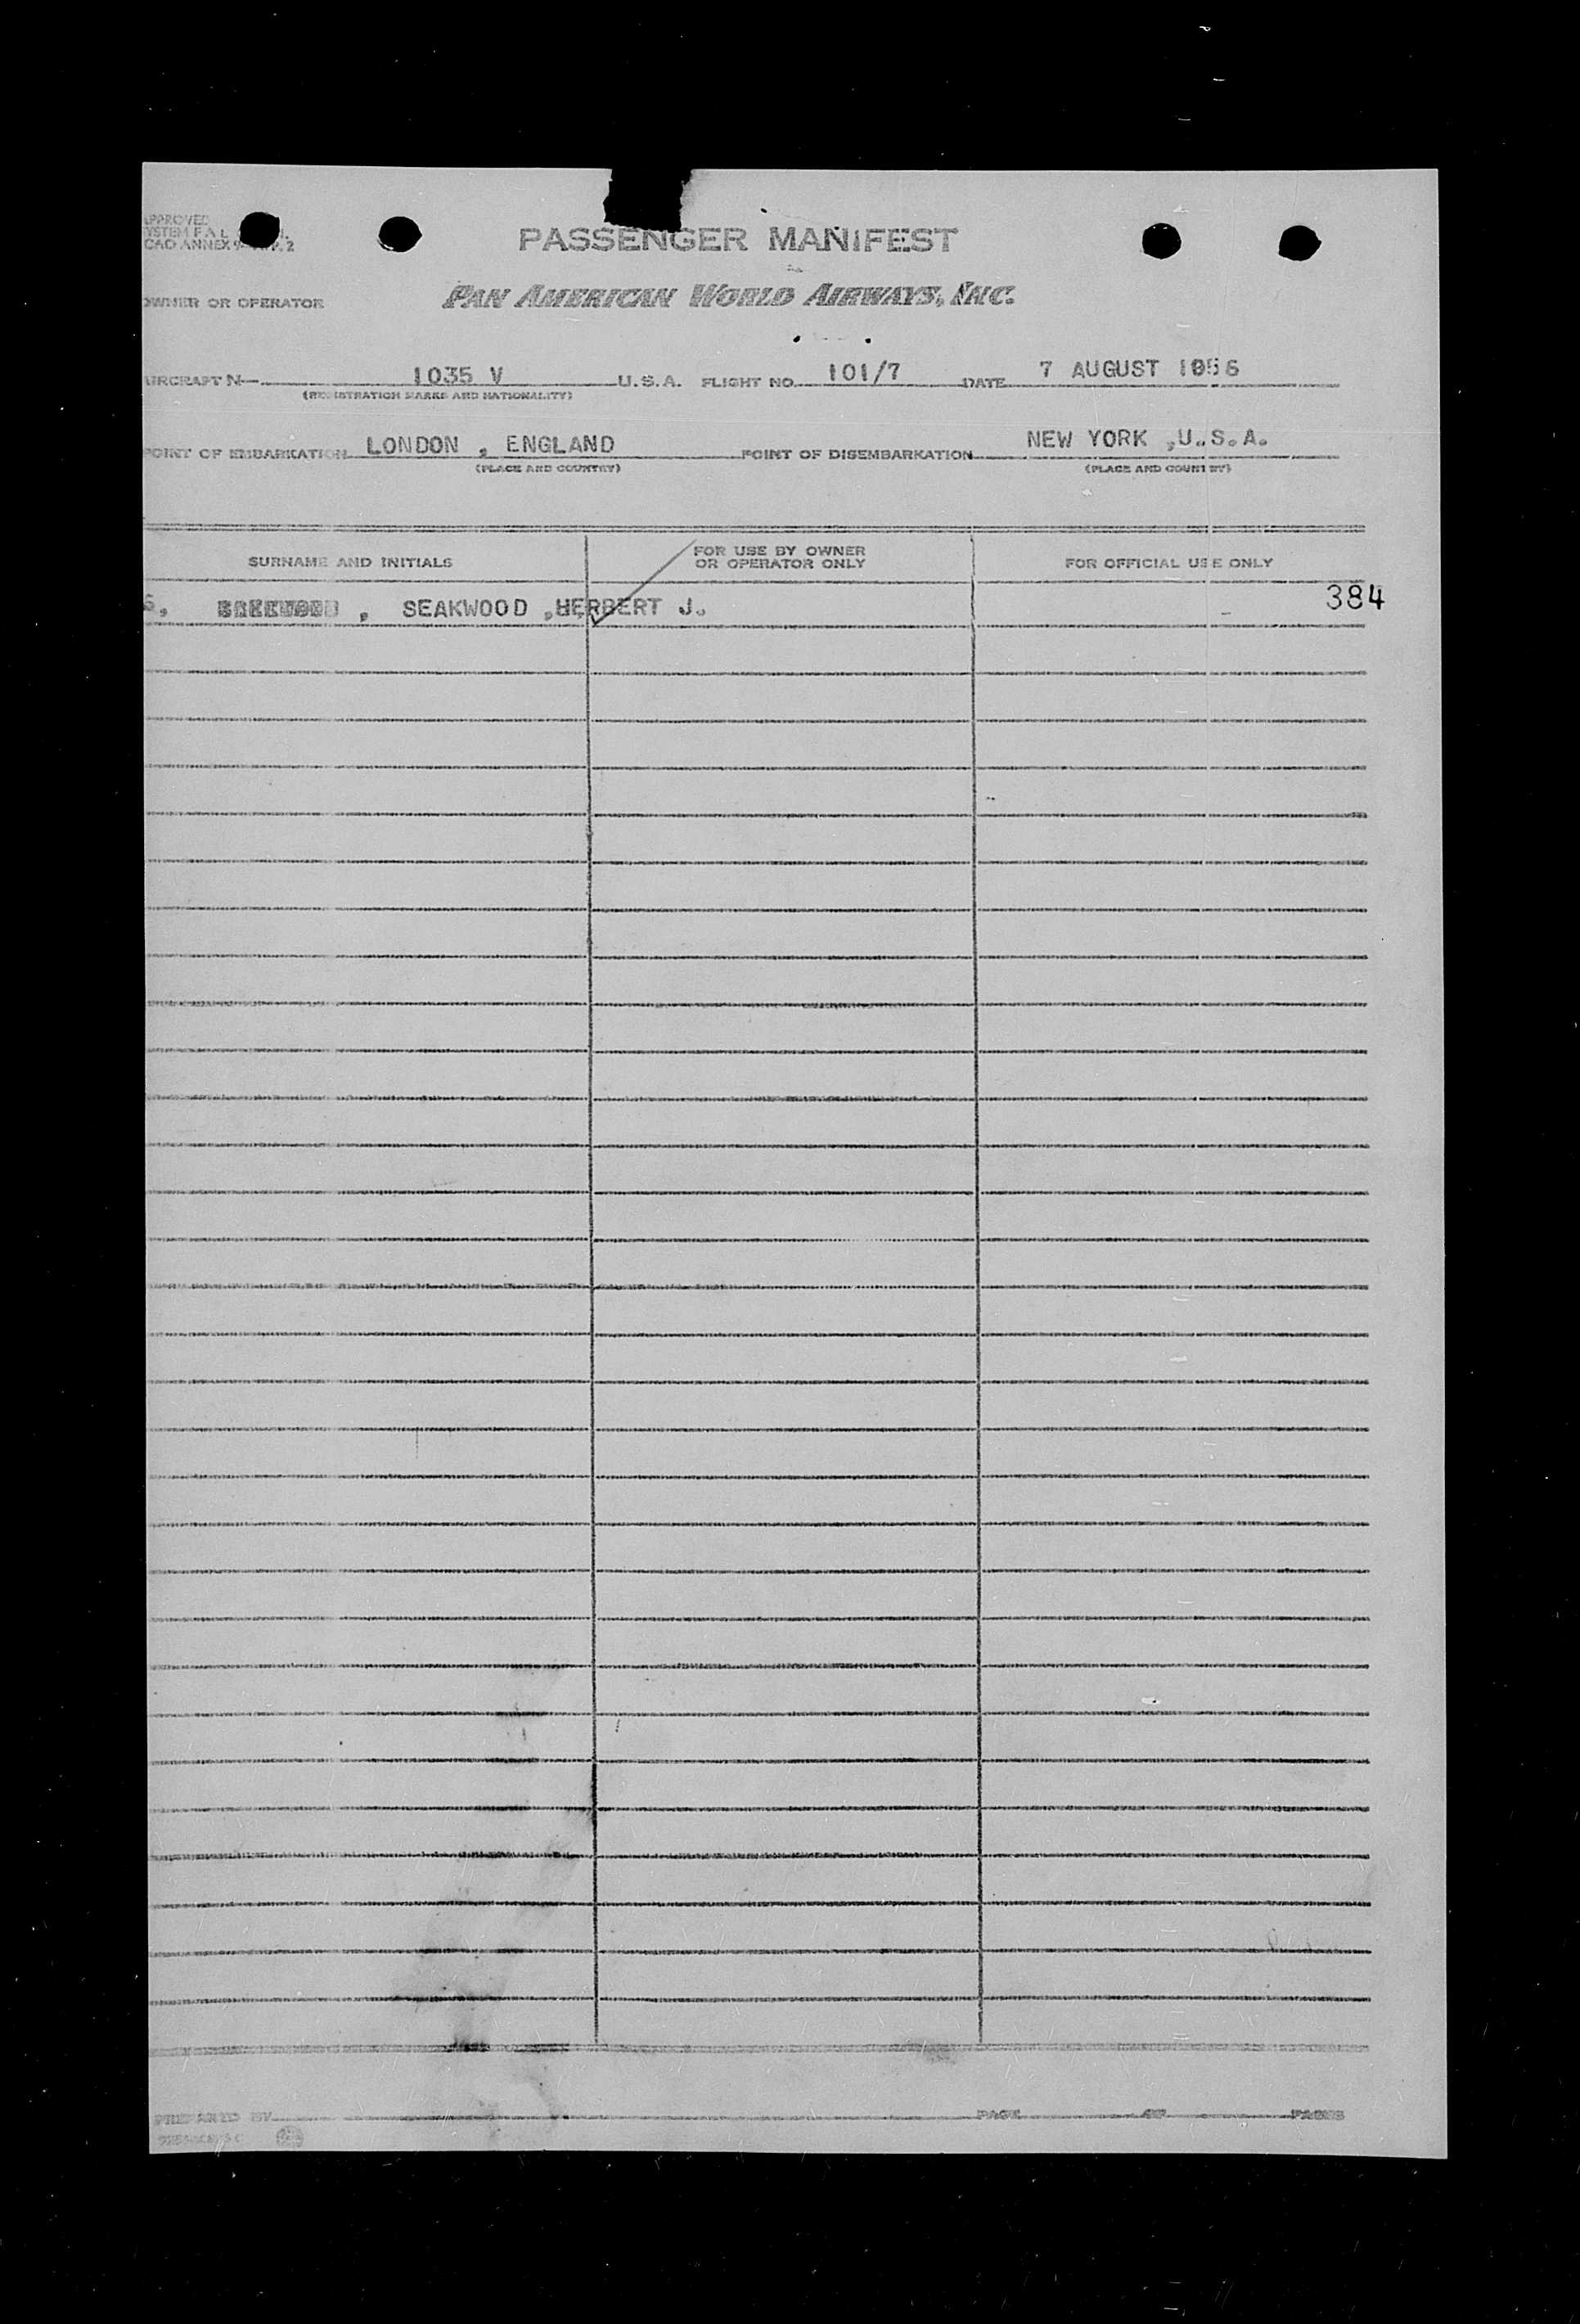 APPROVED
SYSTEM F A L
CAO ANNEX 9 2
PASSENGER MANIFEST
OWNER OR OPERATOR PAN AMERICAN WORLD AIRWAYS, INC.
AIRCRAFT N— 1035 V U.S.A. FLIGHT NO. 101/7 DATE 7 AUGUST 1956
(REGISTRATION MARKS AND NATIONALITY)
POINT OF EMBARKATION LONDON , ENGLAND POINT OF DISEMBARKATION NEW YORK ,U.S.A.
(PLACE AND COUNTRY) (PLACE AND COUNTRY)
SURNAME AND INITIALS FOR USE BY OWNER OR OPERATOR ONLY FOR OFFICIAL USE ONLY
, SEAKWOOD ,HERBERT J. 384
PREPARED BY PAGE OF PAGES